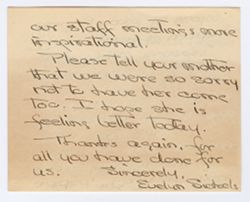 our staff meetings more
inspirational.
Please tell your mother
that we were so sorry
not to have her come
too. I hope she is
feeling better today.
Thanks again, for
all you have done for
us. Sincerely,
Evelyn